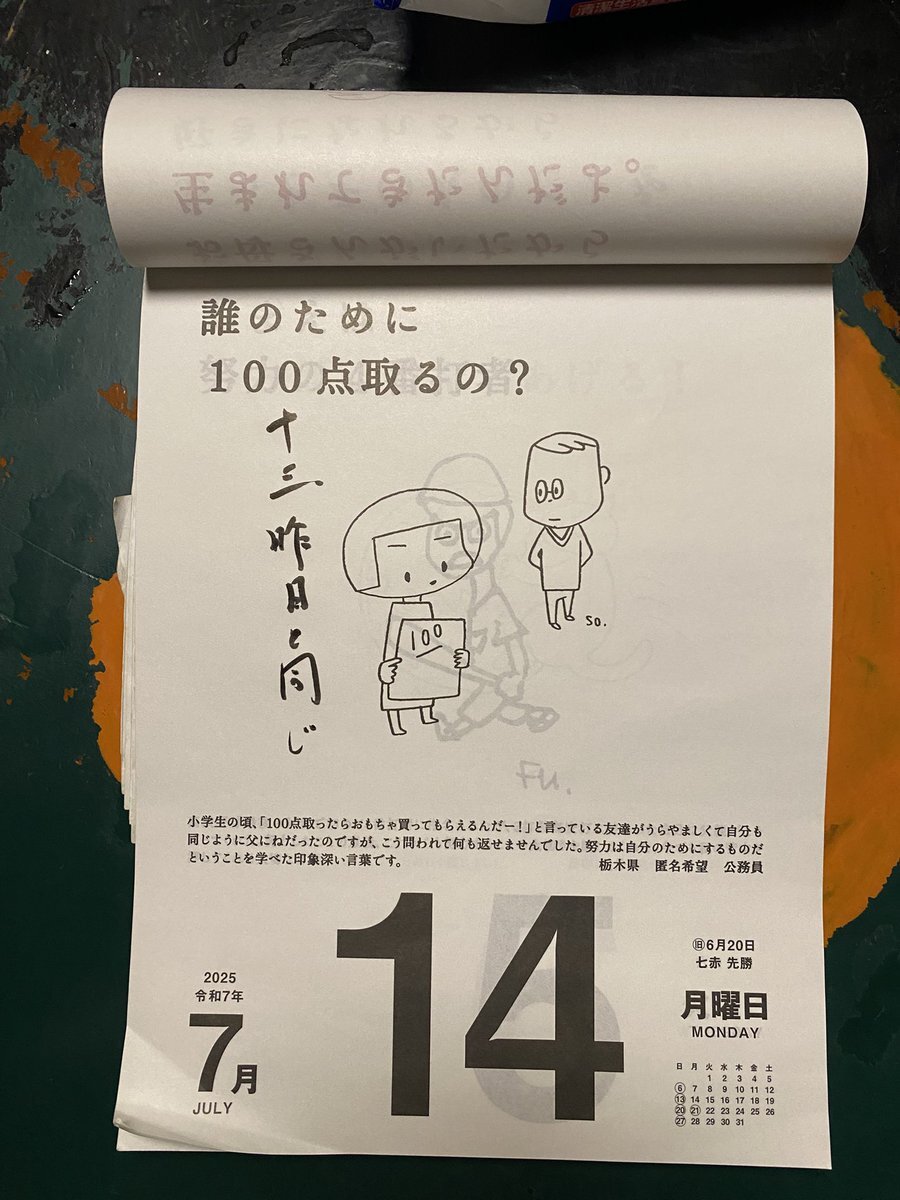 清潔生活
生まれてきたんだよ。
お母さんがいたから
誰のために
100点取るの？
十三 昨日と同じ
100
so.
Fu.
小学生の頃、「100点取ったらおもちゃ買ってもらえるんだー！」と言っている友達がうらやましくて自分も
同じように父にねだったのですが、こう問われて何も返せませんでした。努力は自分のためにするものだ
ということを学べた印象深い言葉です。 栃木県 匿名希望 公務員
2025
令和7年
7月
JULY
14
旧6月20日
七赤 先勝
月曜日
MONDAY
日 月 火 水 木 金 土
1 2 3 4 5
6 7 8 9 10 11 12
13 14 15 16 17 18 19
20 21 22 23 24 25 26
27 28 29 30 31